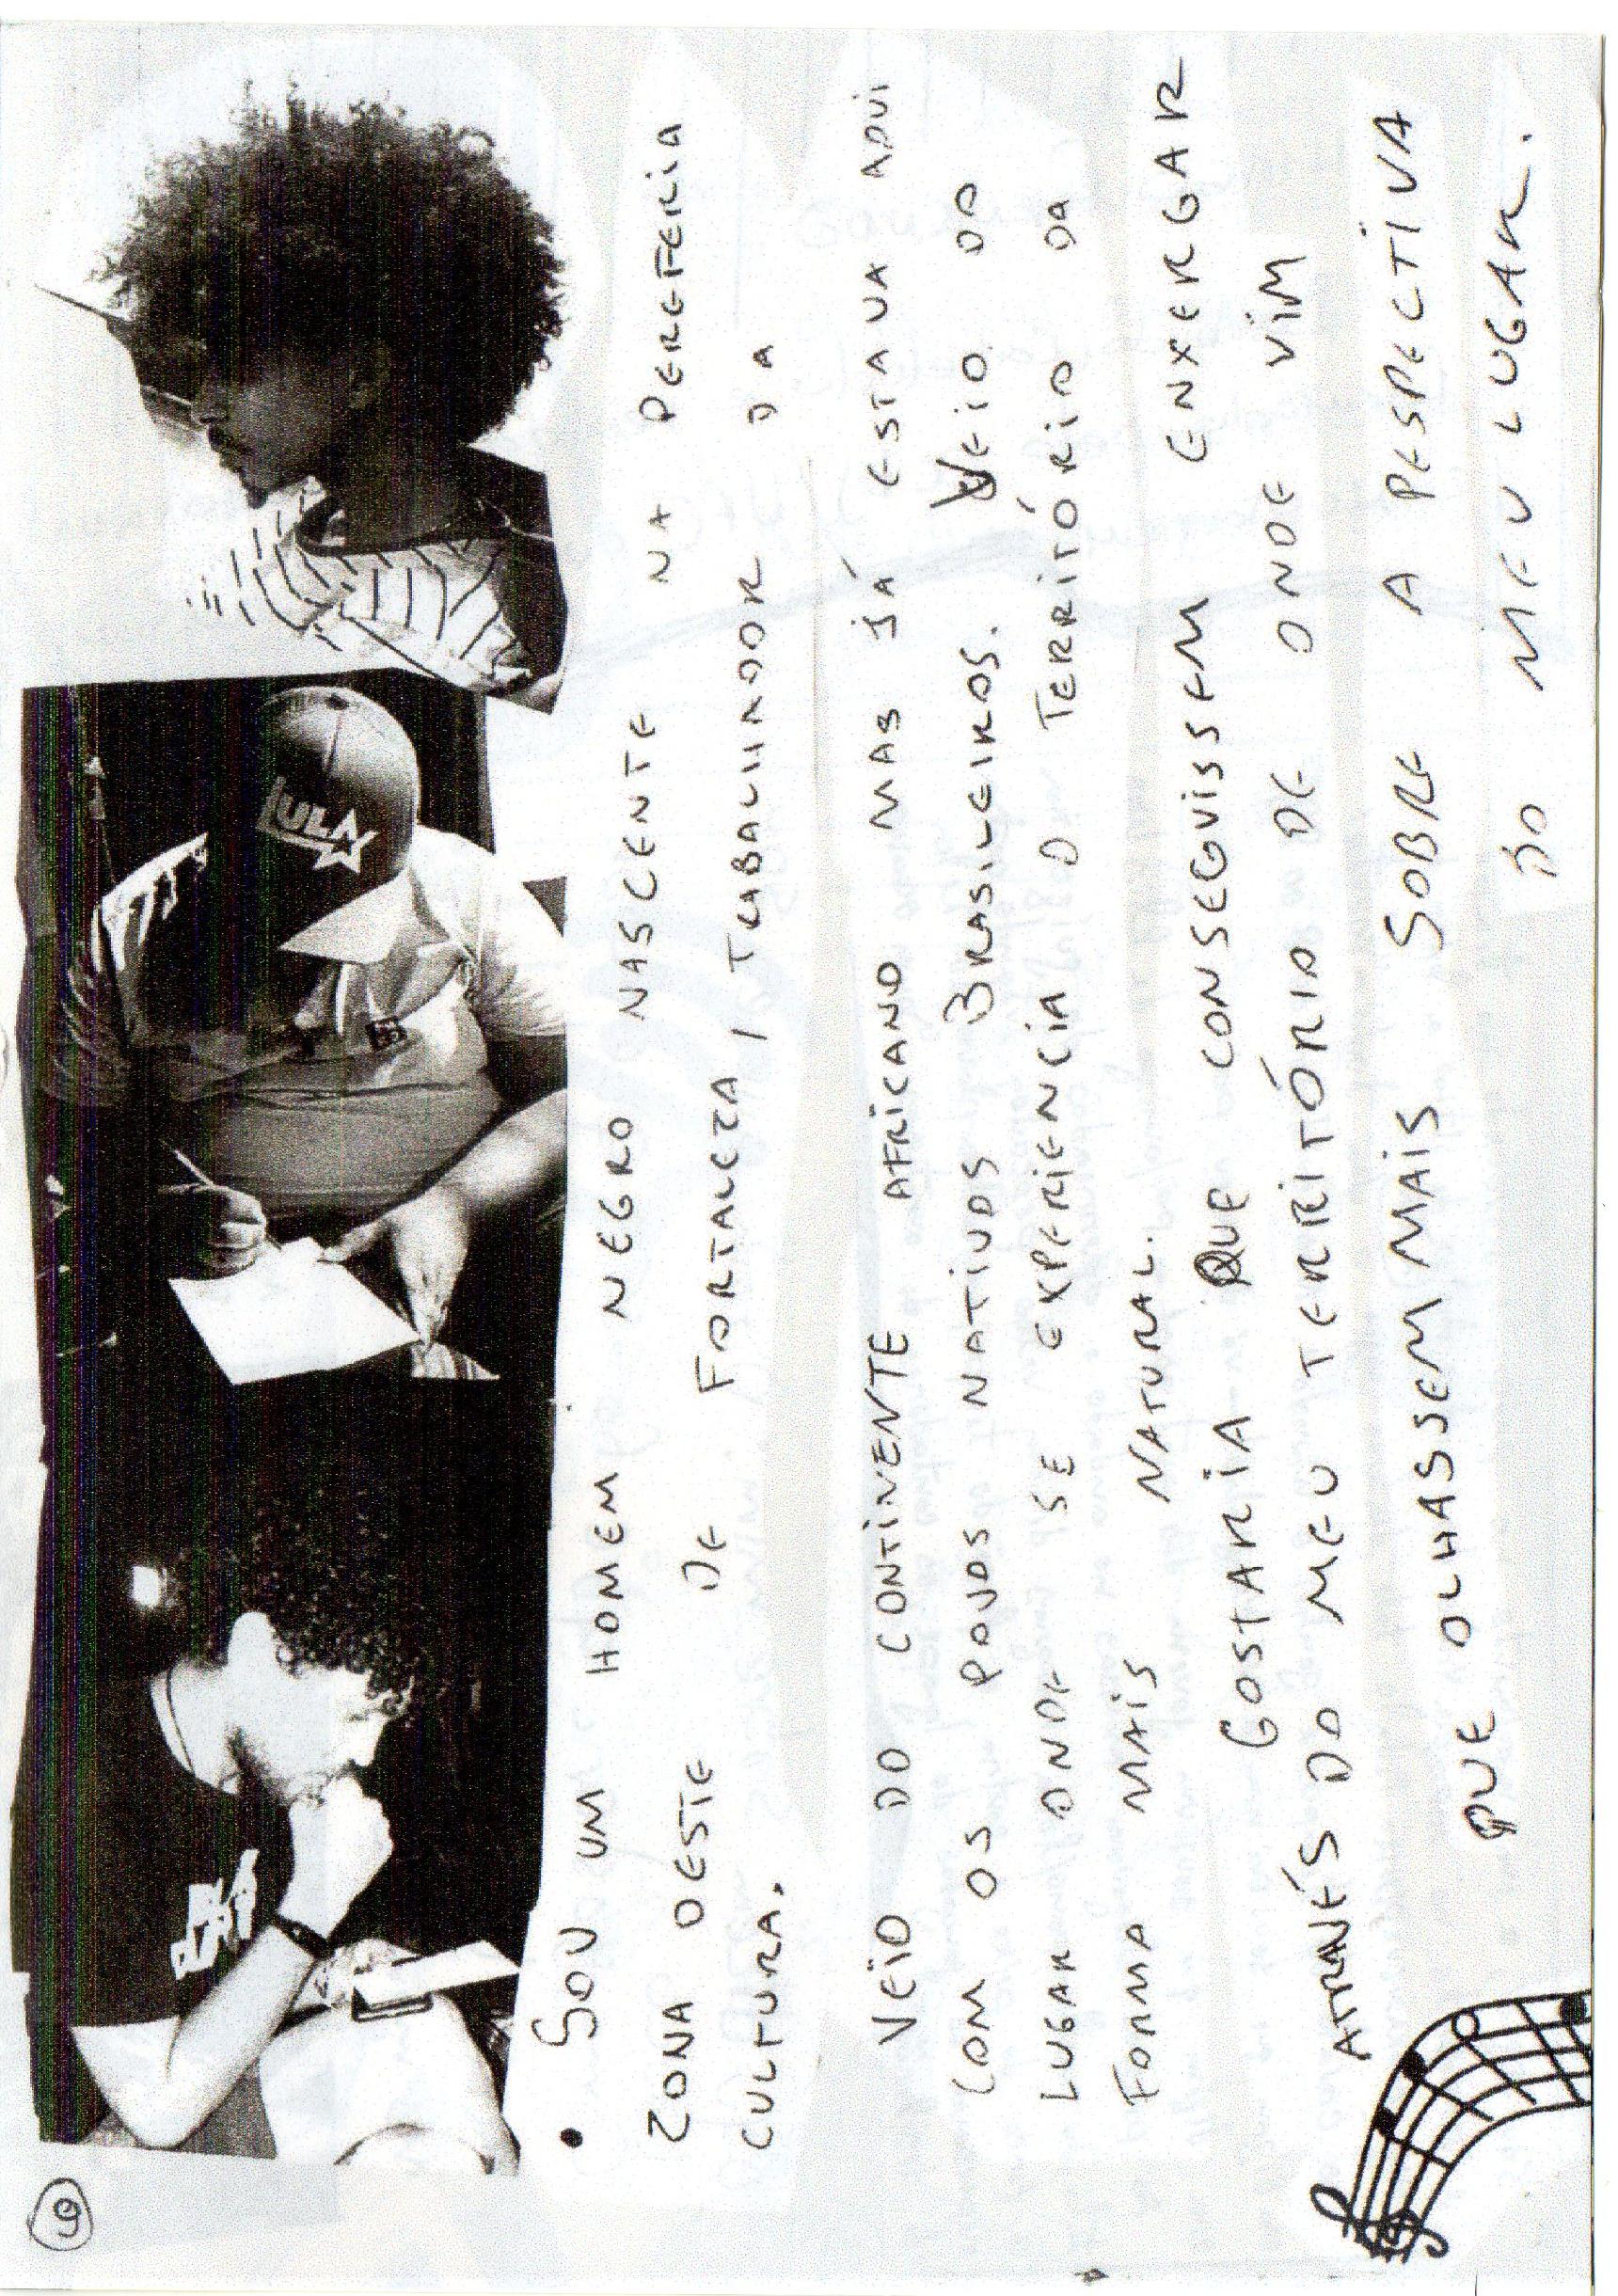 9
LULA
ART
• SOU UM HOMEM NEGRO NASCENTE NA PEREFERIA
ZONA OESTE DE FORTALEZA, TRABALHADOR DA
CULTURA.
VEIO DO CONTINENTE AFRICANO MAS JÁ ESTAVA AQUI
COM OS POVOS NATIVOS BRASILEIROS. VEIO DO
LUGAR ONDE SE EXPERIENCÍA O TERRITÓRIO DA
FORMA MAIS NATURAL.
GOSTARIA QUE CONSEGUISSEM ENXERGAR
ATRAVÉS DO MEU TERRITÓRIO DE ONDE VIM
QUE OLHASSEM MAIS SOBRE A PESPECTIVA
DO MEU LUGAR.